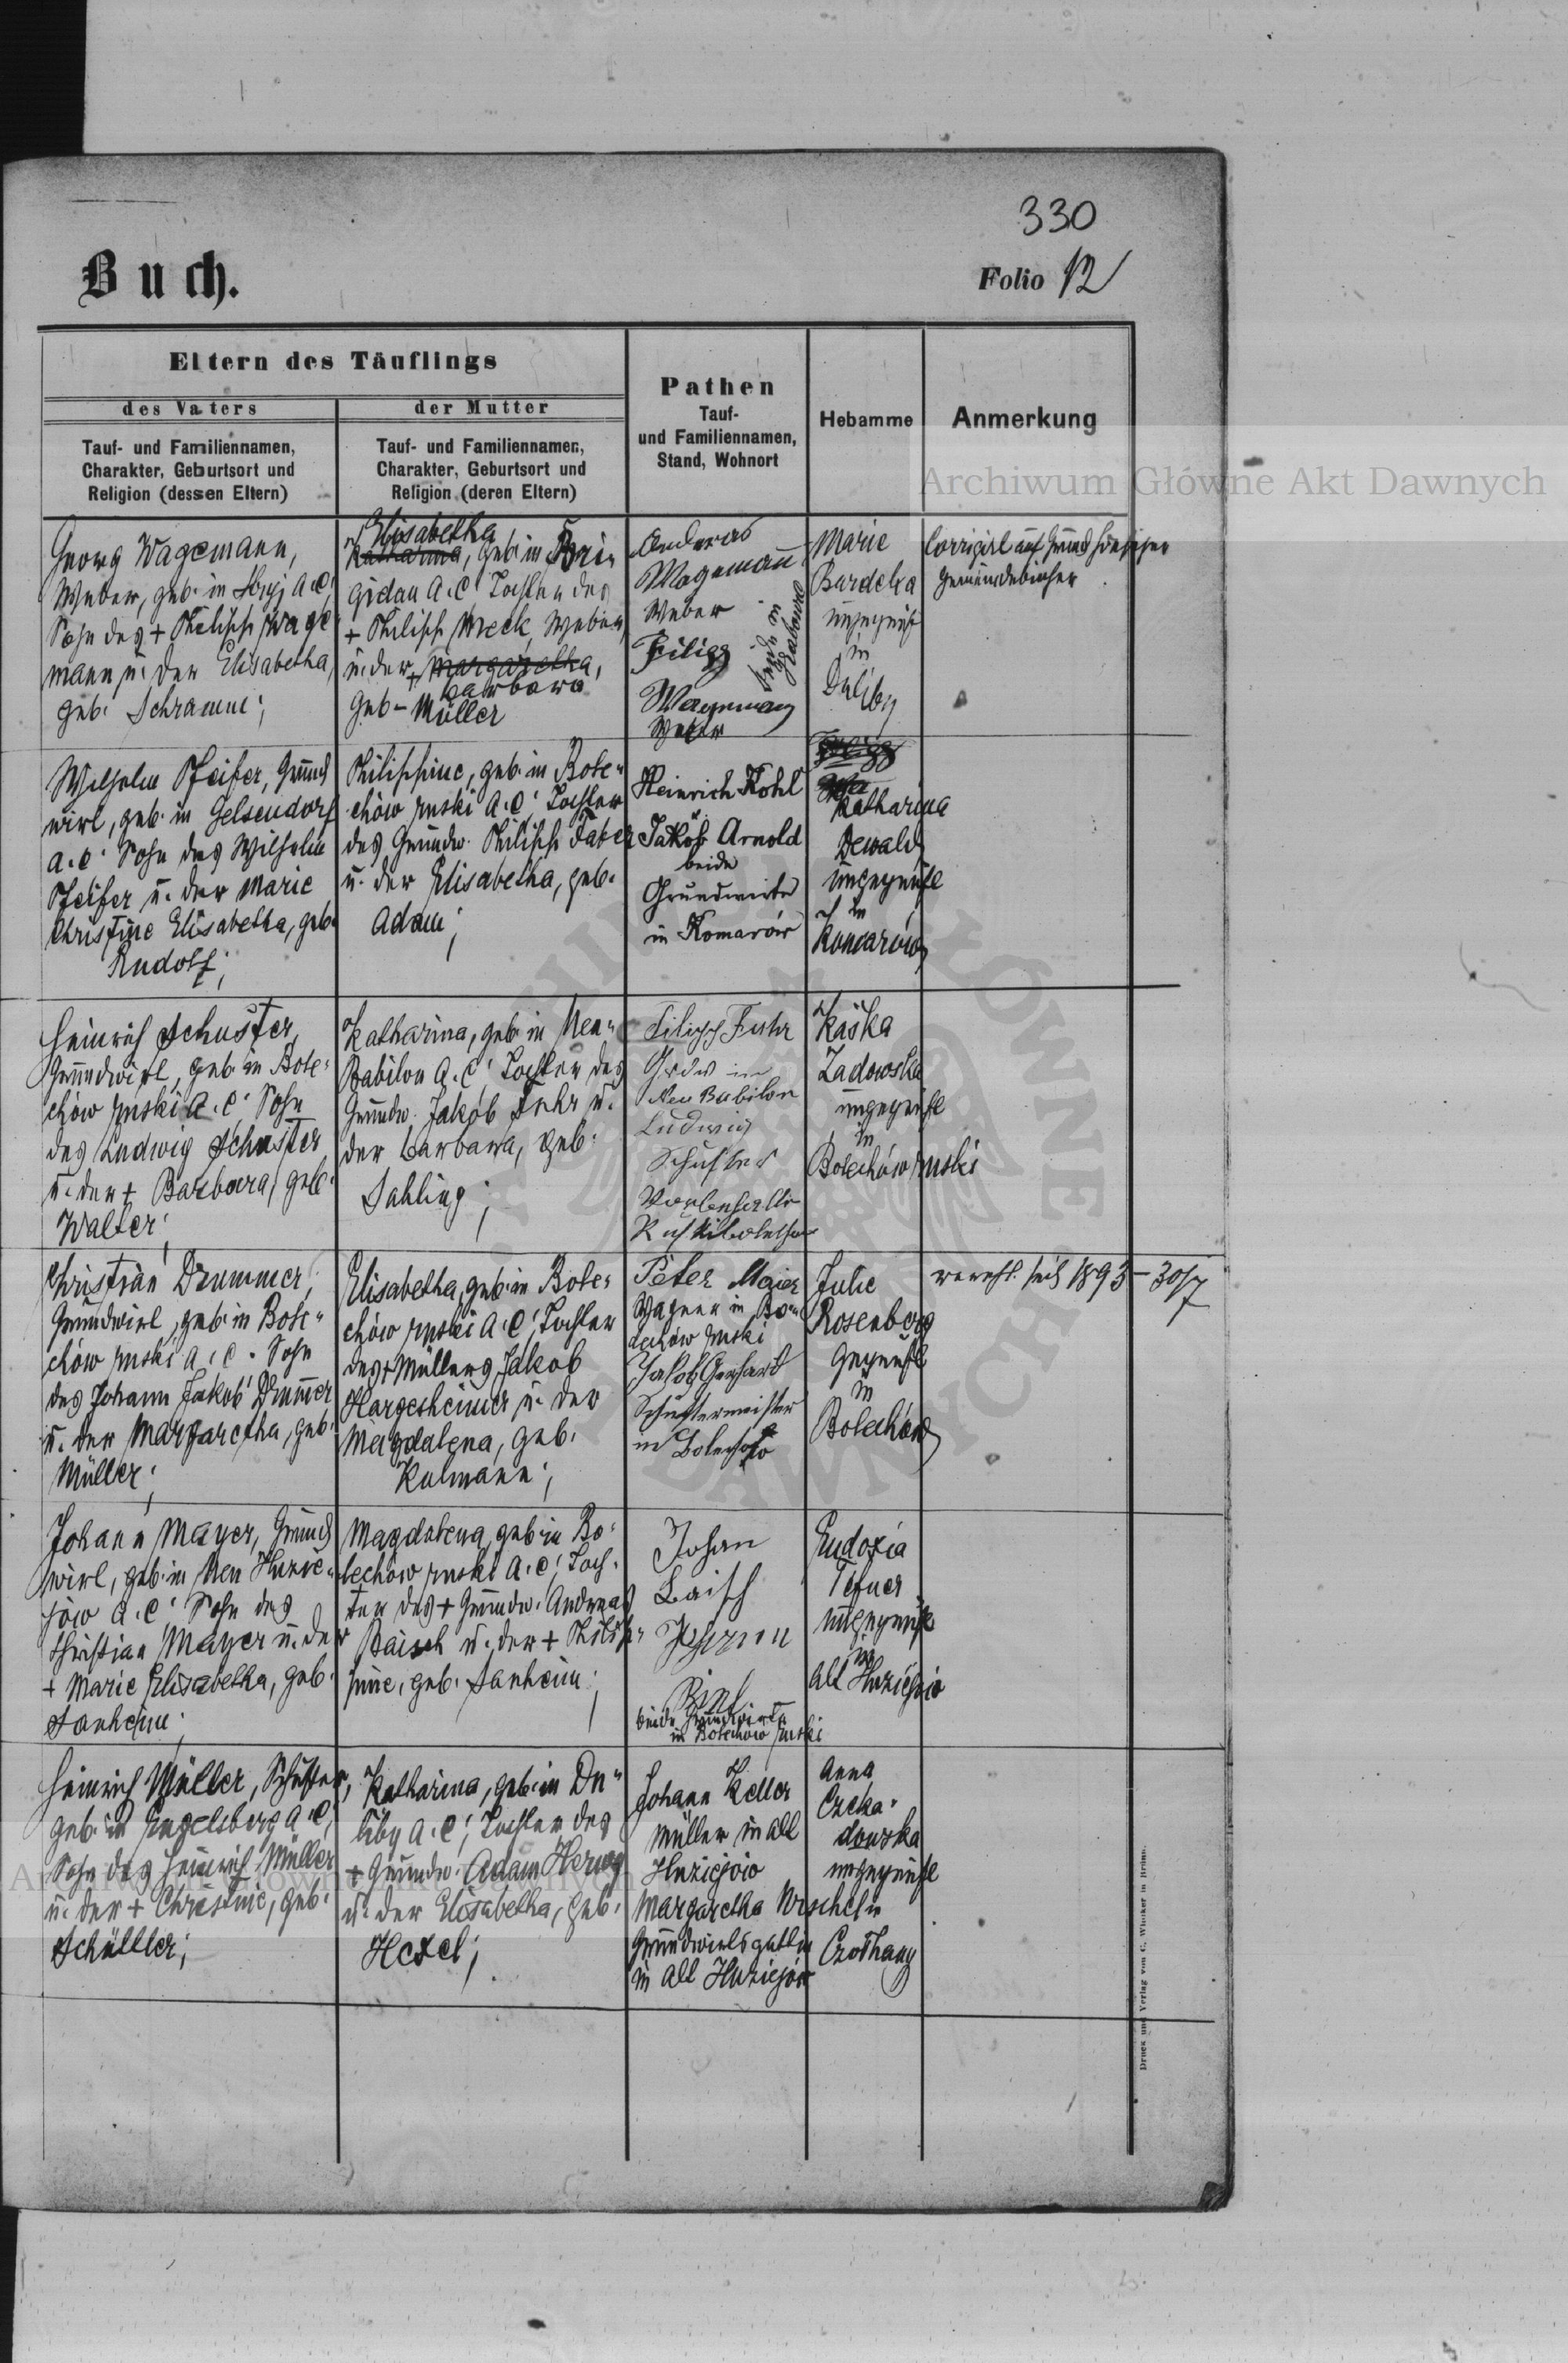 330
Buch.
Folio 12
Eltern des Täuflings
des Vaters
der Mutter
Tauf- und Familiennamen,
Charakter, Geburtsort und
Religion (dessen Eltern)
Tauf- und Familiennamen,
Charakter, Geburtsort und
Religion (deren Eltern)
Pathen
Tauf-
und Familiennamen,
Stand, Wohnort
Hebamme
Anmerkung
Archiwum Główne Akt Dawnych
Georg Wagemann,
Weber, geb. in Stryj A.C.
Sohn des + Philipp Wage-
mann u. der Elisabetha,
geb. Schramm;
Elisabetha
Katharina, geb. in Bri-
gidau A.C. Tochter des
+ Philipp Meck, Weber
u. der + Margaretha,
Barbara
geb. Müller
Andreas
Wagemann
Weber
Filipp
Wagemann
Weber
beide in
Marie
Bardeha
ungeprüft
in
Duliby
Corrigirt auf Grund hiesiger
Gemeindebücher
Wilhelm Pfeifer, Grund
wirt, geb. in Gelsendorf
A.C. Sohn des Wilhelm
Pfeifer u. der Marie
Christine Elisabetha, geb.
Rudolf;
Philippine, geb. in Bole-
chów ruski A.C. Tochter
des Grundw. Philipp Faber
u. der Elisabetha, geb.
Adam;
Heinrich Kohl
Jakob Arnold
beide
Grundwirte
in Komarów
Katharina
Dewald
ungeprüft
in
Komarów
Heinrich Schuster,
Grundwirt, geb. in Bole-
chów ruski A.C. Sohn
des Ludwig Schuster
u. der + Barbara, geb.
Walter;
Katharina, geb. in Neu-
Babilon A.C. Tochter des
Grundw. Jakób Fuhr u.
der Barbara, geb.
Sahling;
Filipp Fuhr
Grdw in
Neu Babilon
Ludwig
Schuster
Kaśka
Zadowska
ungeprüft
in
Bolechów ruski
Christian Drummer,
Grundwirt, geb. in Bole-
chów ruski A.C. Sohn
des Johann Jakób Drummer
u. der Margaretha, geb.
Müller;
Elisabetha, geb. in Bole-
chów ruski A.C. Tochter
des + Müllers Jakob
Hargesheimer u. der
Magdalena, geb.
Kulmann;
Peter Maier
Wagner in Bo-
lechów ruski
Jakob Gerhart
Schustermeister
in Bolechów
Julie
Rosenberg
geprüft
in
Bolechów
verehl. seit 1893-30/7
Johann Mayer, Grund
wirt, geb. in Neu Huzie-
jów A.C. Sohn des
Christian Mayer u. der
+ Marie Elisabetha, geb.
Manheim;
Magdalena, geb. in Bo-
lechów ruski A.C. Toch-
ter des + Grundw. Andreas
Baisch u. der + Philip-
pine, geb. Manheim;
Johan
Baisch
beide Grundwirte
in Bolechów ruski
Eudoxia
ungeprüft
in
Alt Huziejów
Heinrich Müller, Schuster,
geb. in Engelsberg A.C.
Sohn des Heinrich Müller
u. der + Christine, geb.
Schüttler;
Katharina, geb. in Du-
liby A.C. Tochter des
+ Grundw. Adam Herwy
u. der Elisabetha, geb.
Hexel;
Johann Keller
Müller in Alt
Huziejów
Margaretha Wrschel
Grundwirtsgattin
in Alt Huziejów
Anna
Czeka-
dowska
ungeprüft
in
Czothany
Druck und Verlag von C. Winiker in Brünn.